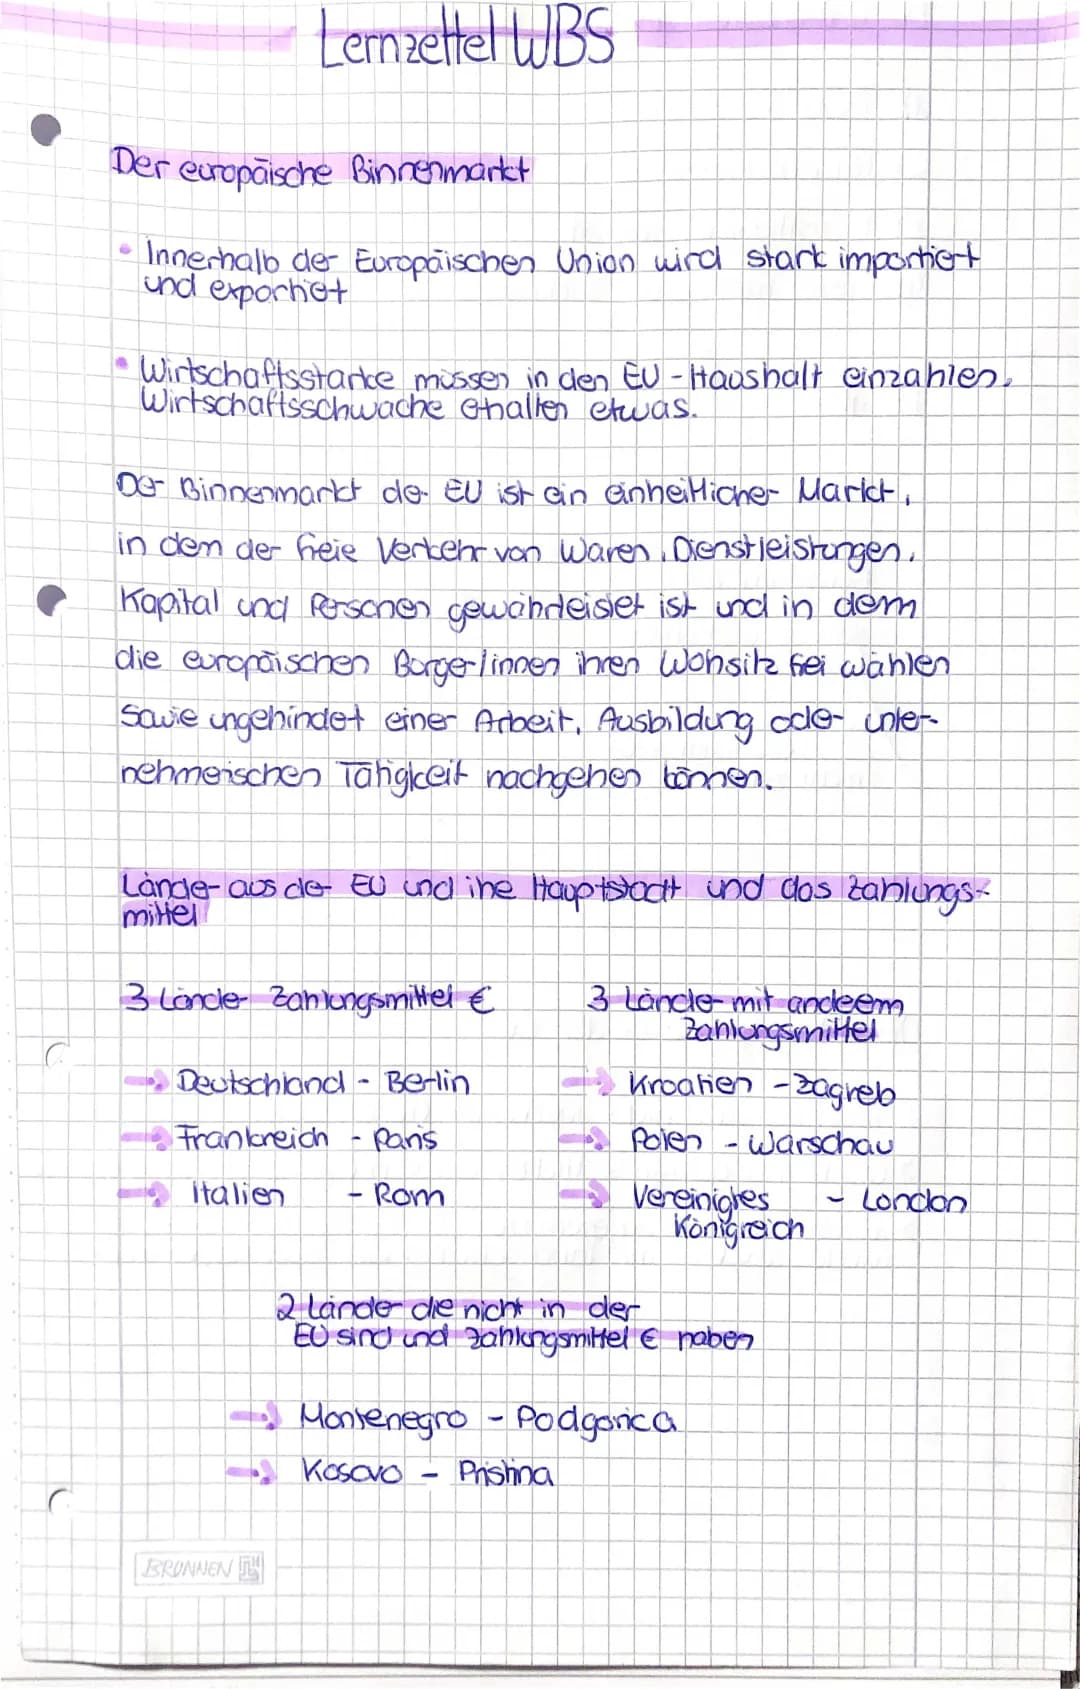 Lernzettel WBS
Der europäische Binnenmarkt
• Innerhalb der Europäischen Union wird stark importiert
und exportiert
• Wirtschaftsstarke müssen in den EU-Haushalt einzahlen,
Wirtschaftsschwache erhalten etwas.
Der Binnenmarkt der EU ist ein einheitlicher Markt,
in dem der freie Verkehr von Waren, Dienstleistungen,
Kapital und Personen gewährleistet ist und in dem
die europäischen Bürger/innen ihren Wohnsitz frei wählen
sowie ungehindert einer Arbeit, Ausbildung oder unter-
nehmerischen Tätigkeit nachgehen können.
Länder aus der EU und ihre Hauptstadt und das Zahlungs-
mittel
3 Länder Zahlungsmittel €
→ Deutschland - Berlin
→ Frankreich - Paris
→ Italien - Rom
3 Länder mit anderem
Zahlungsmittel
→ Kroatien - Zagreb
→ Polen - Warschau
→ Vereinigtes - London
Königreich
2 Länder die nicht in der
EU sind und Zahlungsmittel € haben
→ Montenegro - Podgorica
→ Kosovo - Pristina
BRUNNEN